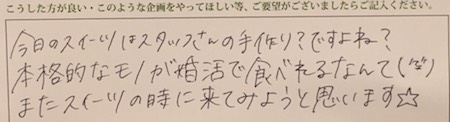 こうした方が良い・このような企画をやってほしい等、ご要望がございましたらご記入ください。
今日のスイーツはスタッフさんの手作り?ですよね?
本格的なモノが婚活で食べれるなんて(笑)
またスイーツの時に来てみようと思います☆